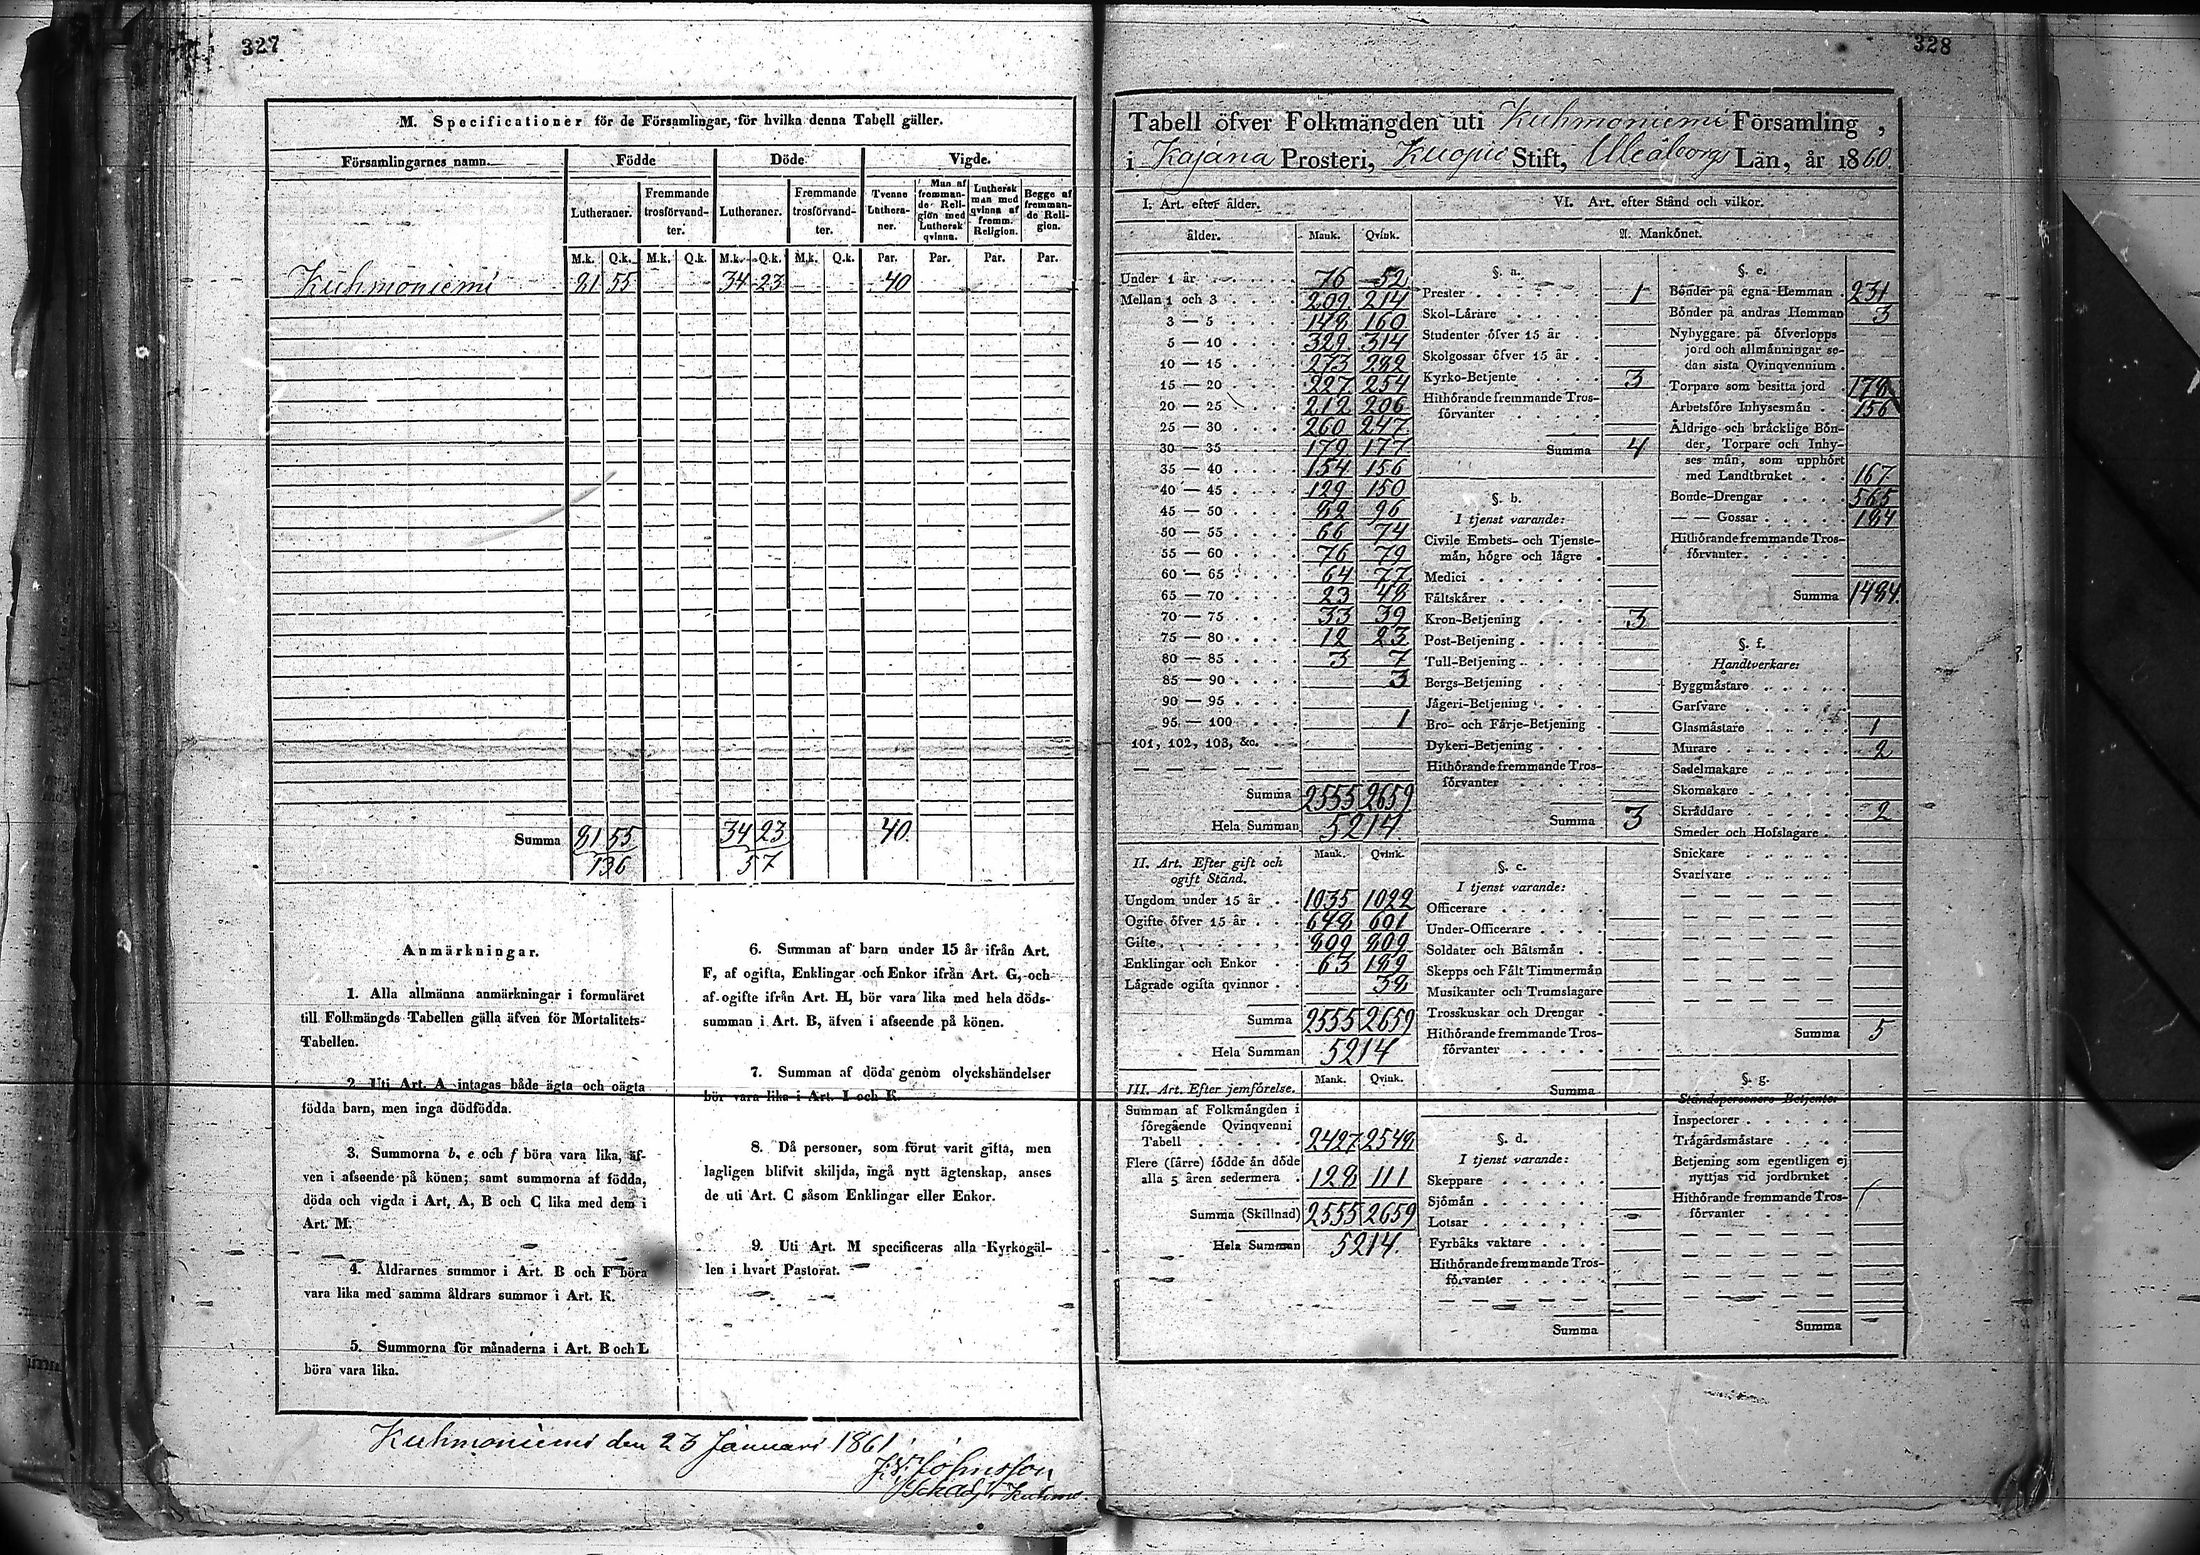 327
M. Specificationer för de Församlingar, för hvilka denna Tabell gäller.
Församlingarnes namn. Födde Döde Vigde.
Lutheraner. Fremmande trosförvandter. Lutheraner. Fremmande trosförvandter. Tvenne Lutheraner. Man af fremmande Religion med Luthersk qvinna. Luthersk man med qvinna af fremm. Religion. Begge af fremmande Religion.
M.k. Q.k. M.k. Q.k. M.k. Q.k. M.k. Q.k. Par. Par. Par. Par.
Kuhmoniemi 81 55 34 23 40
Summa 81 55 34 23 40
136 57
Anmärkningar.
1. Alla allmänna anmärkningar i formuläret
till Folkmängds Tabellen gälla äfven för Mortalitets-
Tabellen.
2. Uti Art. A intagas både ägta och oägta
födda barn, men inga dödfödda.
3. Summorna b, e och f böra vara lika, äf-
ven i afseende på könen; samt summorna af födda,
döda och vigda i Art. A, B och C lika med dem i
Art. M.
4. Åldrarnes summor i Art. B och F böra
vara lika med samma åldrars summor i Art. K.
5. Summorna för månaderna i Art. B och L
böra vara lika.
6. Summan af barn under 15 år ifrån Art.
F, af ogifta, Enklingar och Enkor ifrån Art. G, och
af ogifte ifrån Art. H, bör vara lika med hela döds-
summan i Art. B, äfven i afseende på könen.
7. Summan af döda genom olyckshändelser
bör vara lika i Art. I och K.
8. Då personer, som förut varit gifta, men
lagligen blifvit skiljda, ingå nytt ägtenskap, anses
de uti Art. C såsom Enklingar eller Enkor.
9. Uti Art. M specificeras alla Kyrkogäl-
len i hvart Pastorat.
Kuhmoniemi den 23 Januari 1861
Johnsson
328
Tabell öfver Folkmängden uti Kuhmoniemi Församling,
i Kajana Prosteri, Kuopio Stift, Uleåborgs Län, år 1860.
I. Art. efter ålder.
ålder. Mank. Qvink.
Under 1 år 76 52
Mellan 1 och 3 209 214
3 — 5 148 160
5 — 10 329 314
10 — 15 273 282
15 — 20 227 254
20 — 25 212 206
25 — 30 260 247
30 — 35 179 177
35 — 40 154 156
40 — 45 129 150
45 — 50 82 96
50 — 55 66 74
55 — 60 76 79
60 — 65 64 77
65 — 70 23 48
70 — 75 33 39
75 — 80 12 23
80 — 85 3 7
85 — 90 3
90 — 95
95 — 100 1
101, 102, 103, &c.
Summa 2555 2659
Hela Summan 5214
II. Art. Efter gift och ogift Stånd. Mank. Qvink.
Ungdom under 15 år 1035 1022
Ogifte öfver 15 år 648 601
Gifte 809 809
Enklingar och Enkor 63 189
Lägrade ogifta qvinnor 38
Summa 2555 2659
Hela Summan 5214
III. Art. Efter jemförelse. Mank. Qvink.
Summan af Folkmängden i
föregående Qvinqvenni
Tabell 2427 2548
Flere (färre) födde än döde
alla 5 åren sedermera 128 111
Summa (Skillnad) 2555 2659
Hela Summan 5214.
VI. Art. efter Stånd och vilkor.
A. Mankönet.
§. a.
Prester 1
Skol-Lärare
Studenter öfver 15 år
Skolgossar öfver 15 år
Kyrko-Betjente 3
Hithörande fremmande Tros-
förvanter
Summa 4
§. b.
I tjenst varande:
Civile Embets- och Tjenste-
män, högre och lägre
Medici
Fältskärer
Kron-Betjening 3
Post-Betjening
Tull-Betjening
Bergs-Betjening
Jägeri-Betjening
Bro- och Färje-Betjening
Dykeri-Betjening
Hithörande fremmande Tros-
förvanter
Summa 3
§. c.
I tjenst varande:
Officerare
Under-Officerare
Soldater och Båtsmän
Skepps och Fält Timmermän
Musikanter och Trumslagare
Trosskuskar och Drengar
Hithörande fremmande Tros-
förvanter
Summa
§. d.
I tjenst varande:
Skeppare
Sjömän
Lotsar
Fyrbåks vaktare
Hithörande fremmande Tros-
förvanter
Summa
§. e.
Bönder på egna Hemman 231
Bönder på andras Hemman 3
Nybyggare på öfverlopps
jord och allmänningar se-
dan sista Qvinqvennium
Torpare som besitta jord 178
Arbetsföre Inhysesmän 156
Åldrige och bräcklige Bön-
der, Torpare och Inhy-
ses män, som upphört
med Landtbruket 167
Bonde-Drengar 565
— — Gossar 184
Hithörande fremmande Tros-
förvanter
Summa 1484.
§. f.
Handtverkare:
Byggmästare
Garfvare
Glasmästare 1
Murare 2
Sadelmakare
Skomakare
Skräddare 2
Smeder och Hofslagare
Snickare
Svarfvare
Summa 5
§. g.
Ståndspersoners Betjente:
Inspectorer
Trägårdsmästare
Betjening som egentligen ej
nyttjas vid jordbruket
Hithörande fremmande Tros-
förvanter
Summa